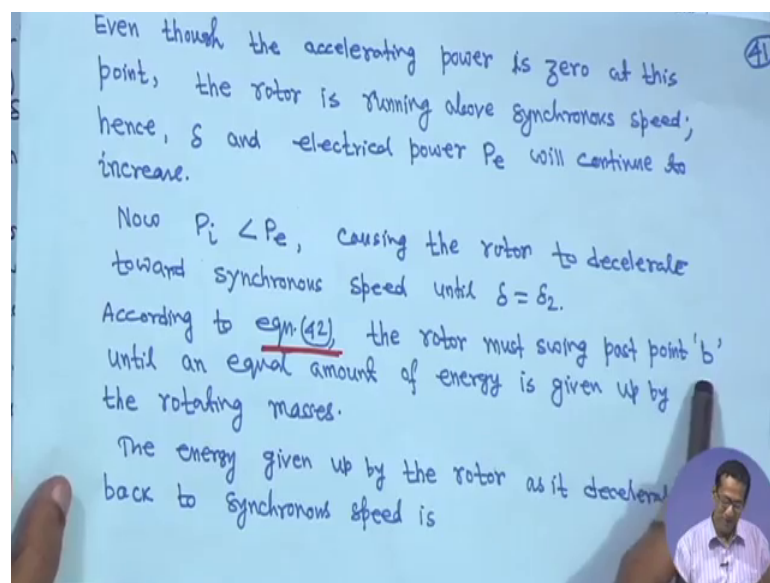 Even though the accelerating power is zero at this
41
point, the rotor is running above synchronous speed;
hence, δ and electrical power Pe will continue to
increase.
Now Pi < Pe, causing the rotor to decelerate
toward synchronous speed until δ = δ2.
According to eqn.(42), the rotor must swing past point 'b'
until an equal amount of energy is given up by
the rotating masses.
The energy given up by the rotor as it decelerat
back to synchronous speed is